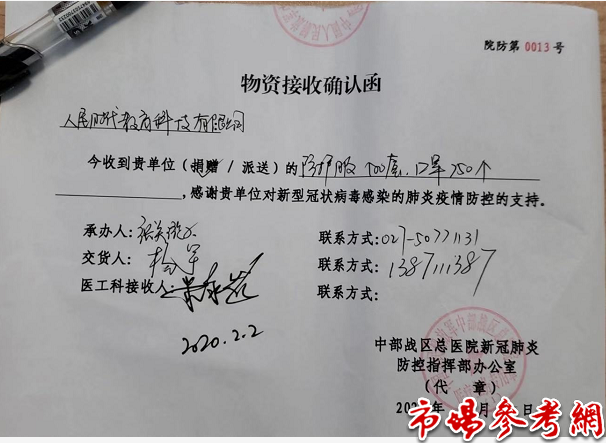 院防第 0013 号
物资接收确认函
人民时代教育科技有限公司
今收到贵单位(捐赠/派送)的 防护服 100套、口罩 750个
,感谢贵单位对新型冠状病毒感染的肺炎疫情防控的支持。
承办人:
联系方式:027-50771131
交货人:杨军
联系方式:
医工科接收人:
联系方式:
2020.2.2
中部战区总医院新冠肺炎
防控指挥部办公室
(代 章)
年 月 日
市場參考網